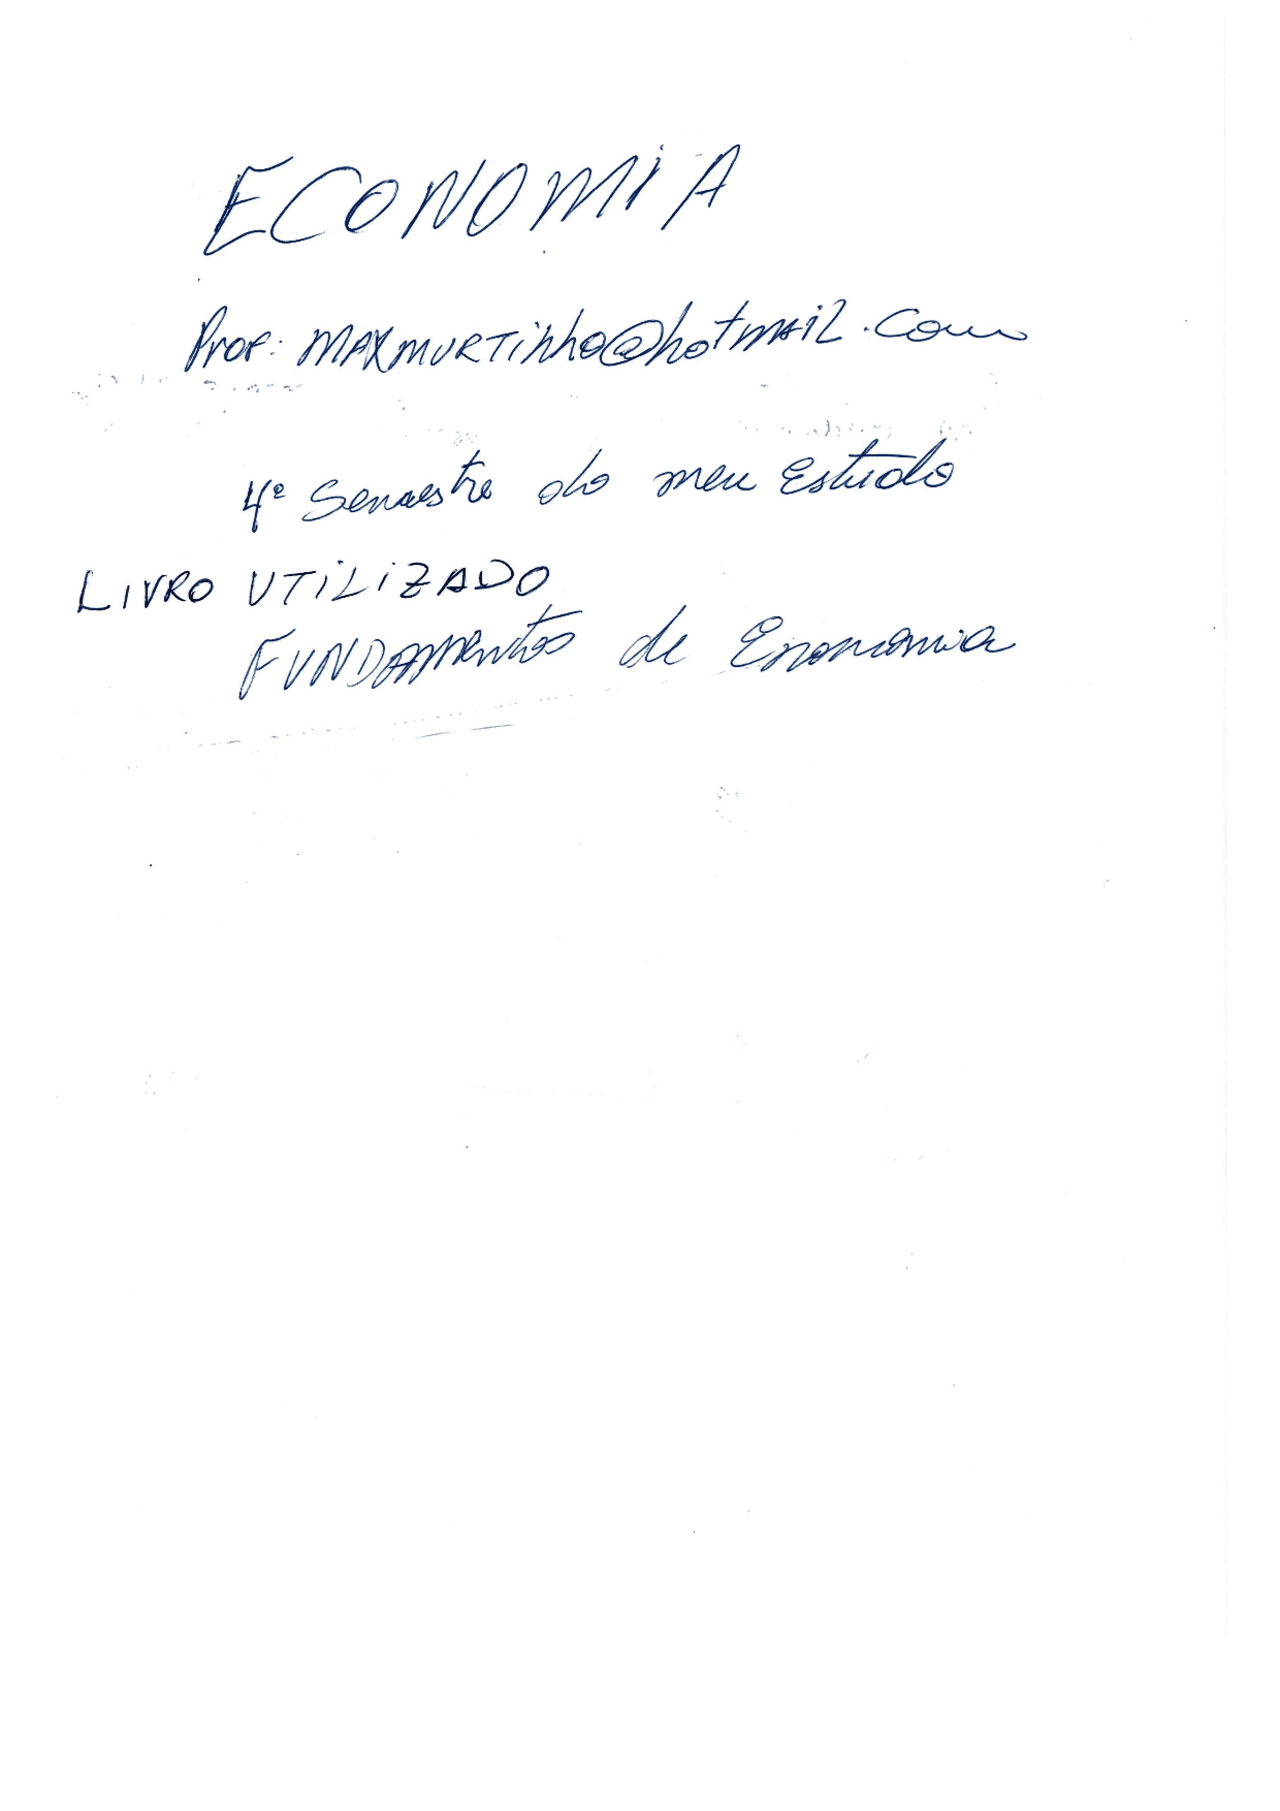 ECONOMIA
Prof: MAXMURTinho@hotmail.com
4º Semestre do meu Estudo
LIVRO UTILIZADO
FUNDAmentos de Economia